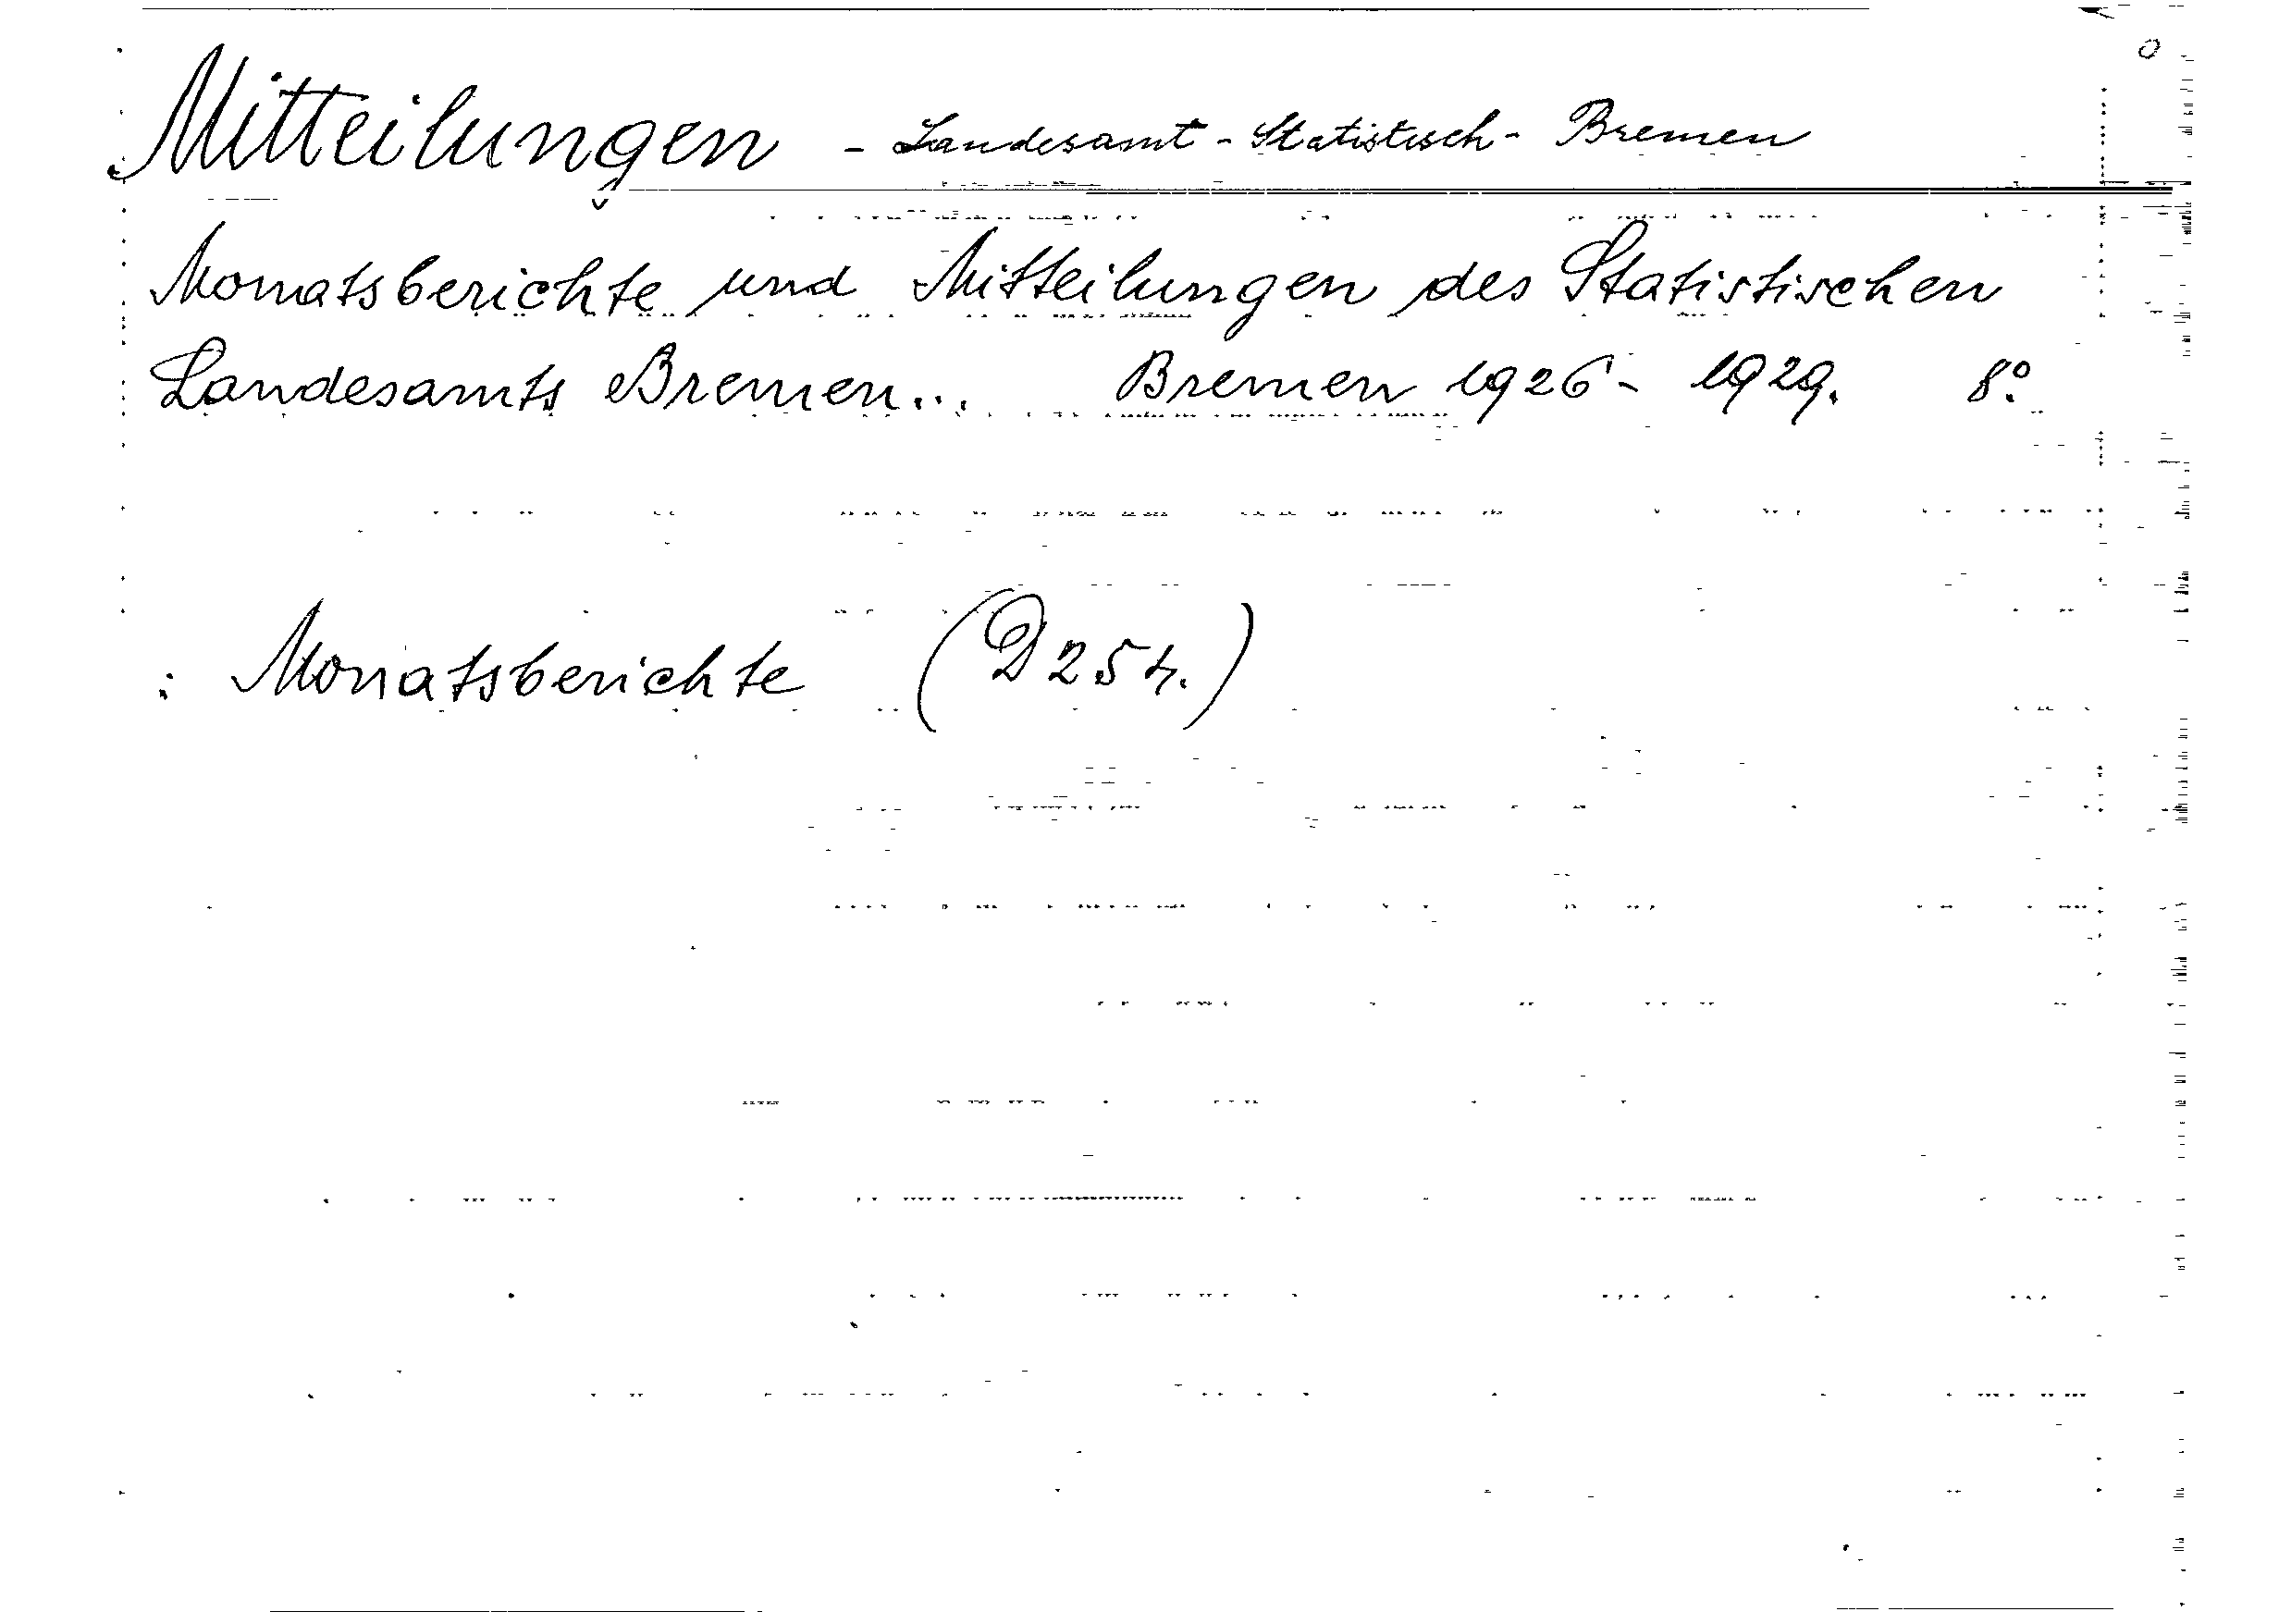 Mitteilungen - Landesamt - Statistisch - Bremen
Monatsberichte und Mitteilungen des Statistischen
Landesamts Bremen... Bremen 1926 - 1929. 8º.
: Monatsberichte (D 254.)